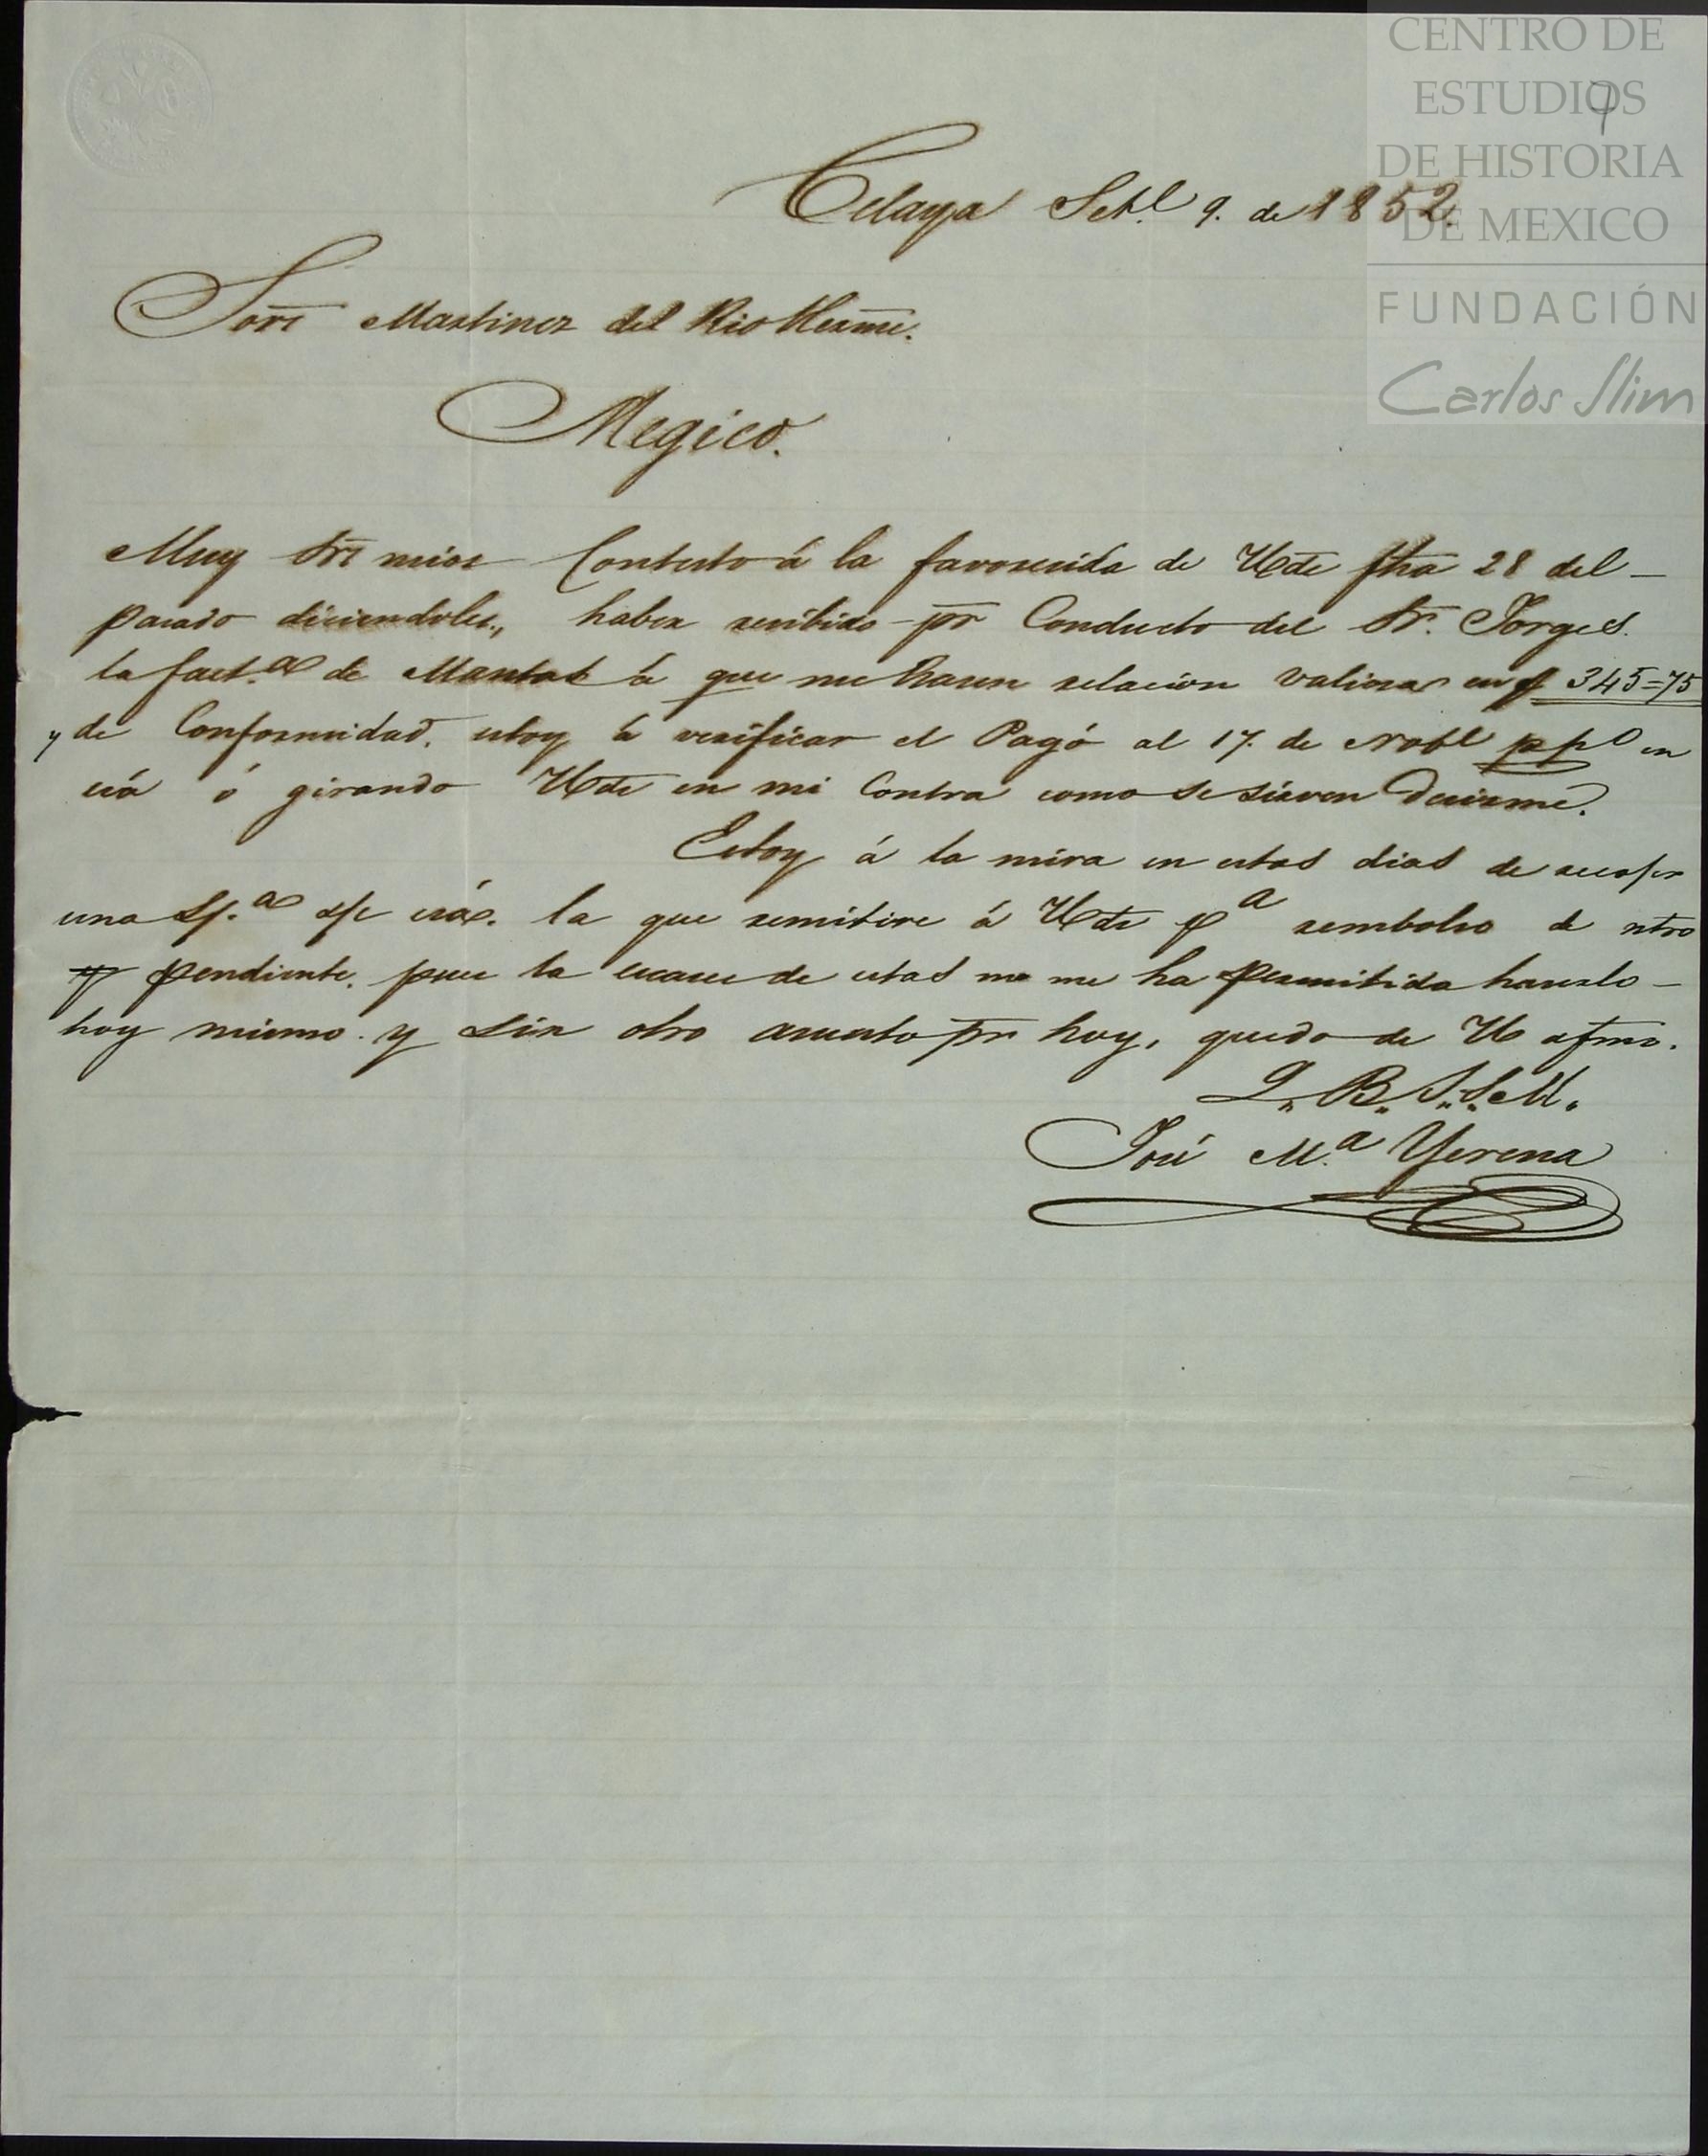 CENTRO DE
ESTUDIOS
DE HISTORIA
DE MEXICO
FUNDACIÓN
Carlos Slim
7
Celaya Set.e 9. de 1852.
Sors Martinez del Rio Herms.
Megico.
Muy Srs mios Contesto á la favorecida de Uds fha 28 del
pasado diciendoles, haber recibido pr Conducto del Sr. Jorge S.
la fact.a de Mantas á que me hacen relacion valiosa en $ 345=75
y de Conformidad, estoy á verificar el Pagó al 17. de Nobe pp.o en
esá ó girando Uds en mi Contra como se sirven Decirme.
Estoy á la mira en estos dias de
una L/.a s/e esá. la que remitire á Uds pa rembolso de ntro
pendiente, pues la escases de estas no me ha permitido hacerlo
hoy mismo. y sin otro asunto pr hoy, quedo de U afmo.
Q. B. S. S. M.
José M.a Yerena